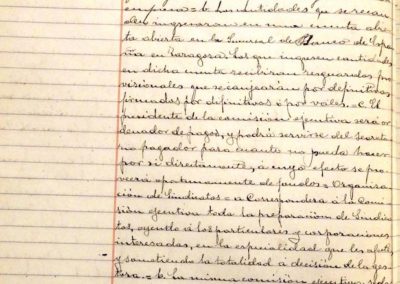 empresa = b. Las cantidades que se recau
den ingresaran en una cuenta abier
ta abierta en la Sucursal del Banco de Espa
ña en Zaragoza. Los que ingresen cantidades
en dicha cuenta recibiran resguardos pro
visionales que se canjearan por definitivos
firmados por definitivos ó por vales = C. El
presidente de la comisión ejecutiva será or
denador de pagos, y podrá servirse del secreta
rio pagador para cuanto no pueda hacer
por si directamente, á cuyo efecto se pro
veerá oportunamente de fondos = Organiza
ción de Sindicatos = a Corresponderá á la Comi
sión ejecutiva toda la preparación de Sindica
tos, oyendo á los particulares y corporaciones
interesadas, en la especialidad que les afecte
y sometiendo la totalidad á decisión de la ges
tora. = b. La misma comisión ejecutiva